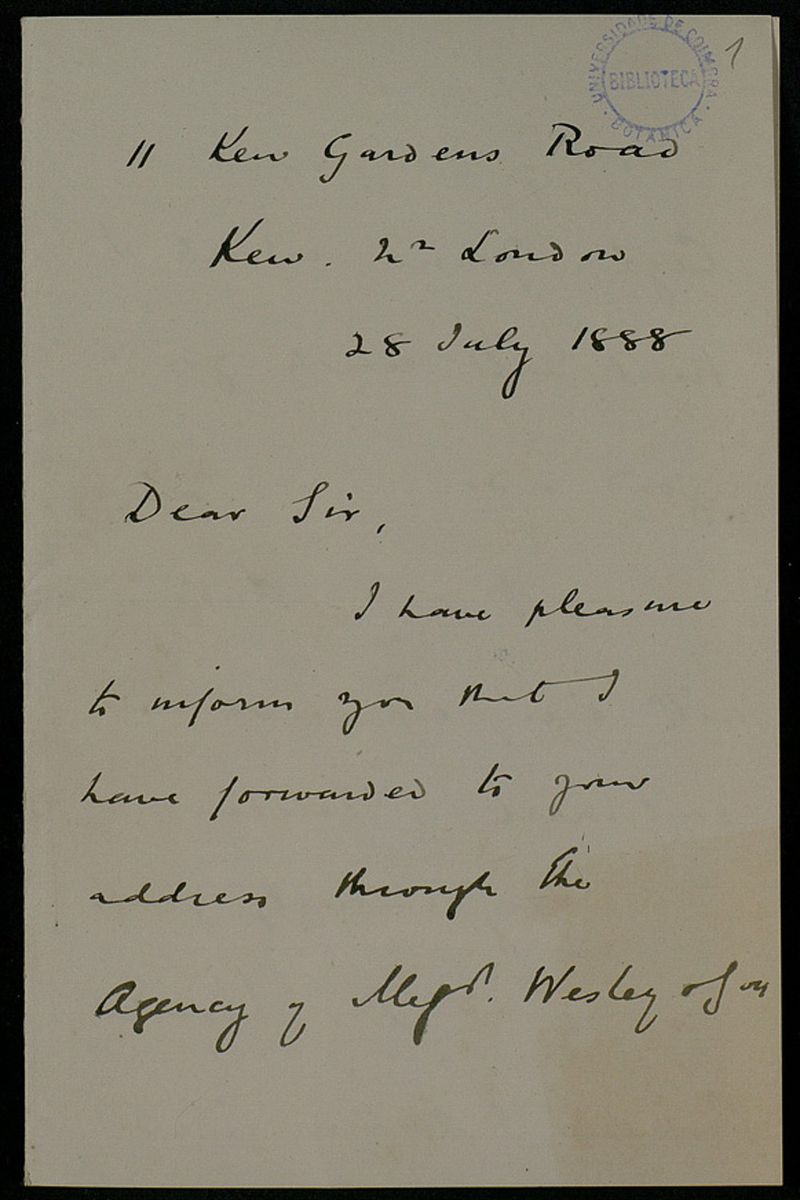 UNIVERSIDADE DE COIMBRA
BIBLIOTECA
BOTANICA
1
11 Kew Gardens Road
Kew. Nr London
28 July 1888
Dear Sir,
I have pleasure
to inform you that I
have forwarded to your
address through the
Agency of Messrs. Wesley & Son